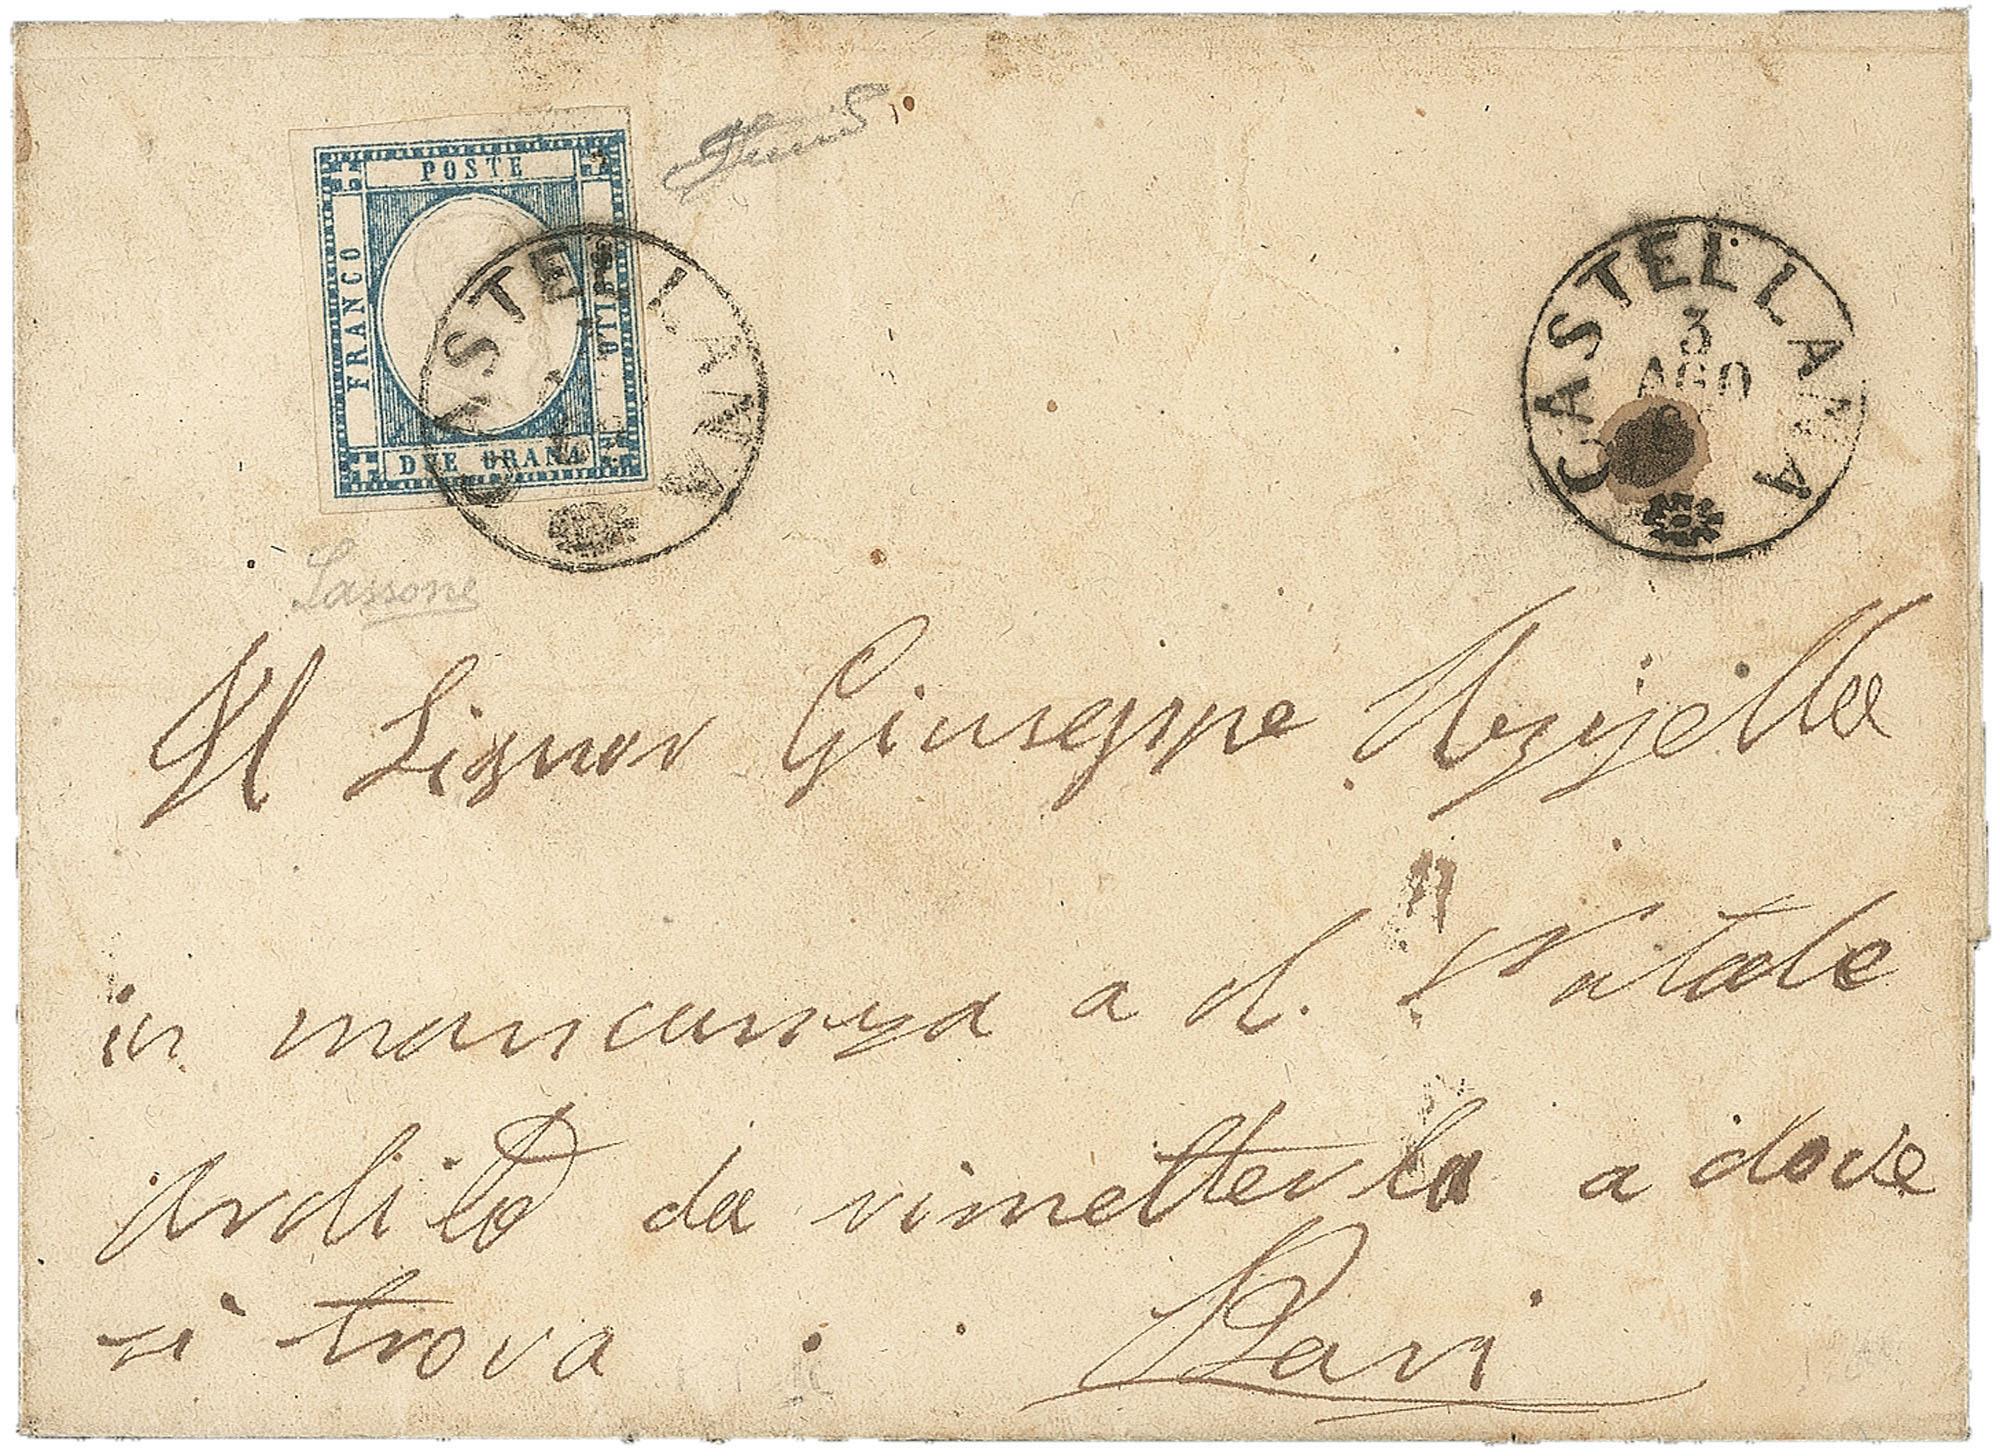 POSTE
FRANCO
BOLLO
DUE GRANA
CASTELLANA
CASTELLANA
3
AGO
Al Signor Giuseppe
in mancanza a d. Natale
da rimetterla a dove
si trova . . Bari